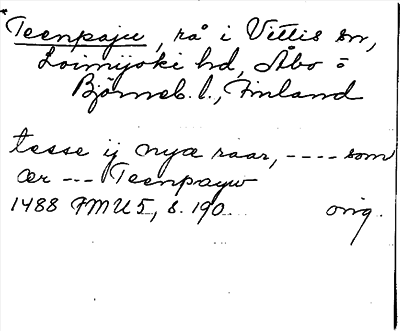 Teenpaju, rå i Vittis sn,
Loimijoki hd, Åbo o
Björneb. l., Finland
tesse ij nyæ raar, ---- som
ær --- Teenpayw
1488 FMU 5, s. 190. orig.